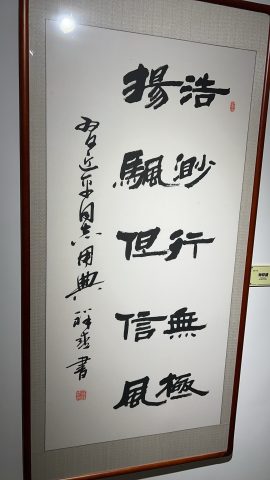 浩渺行無極
揚颿但信風
習近平同志用典 祥 書